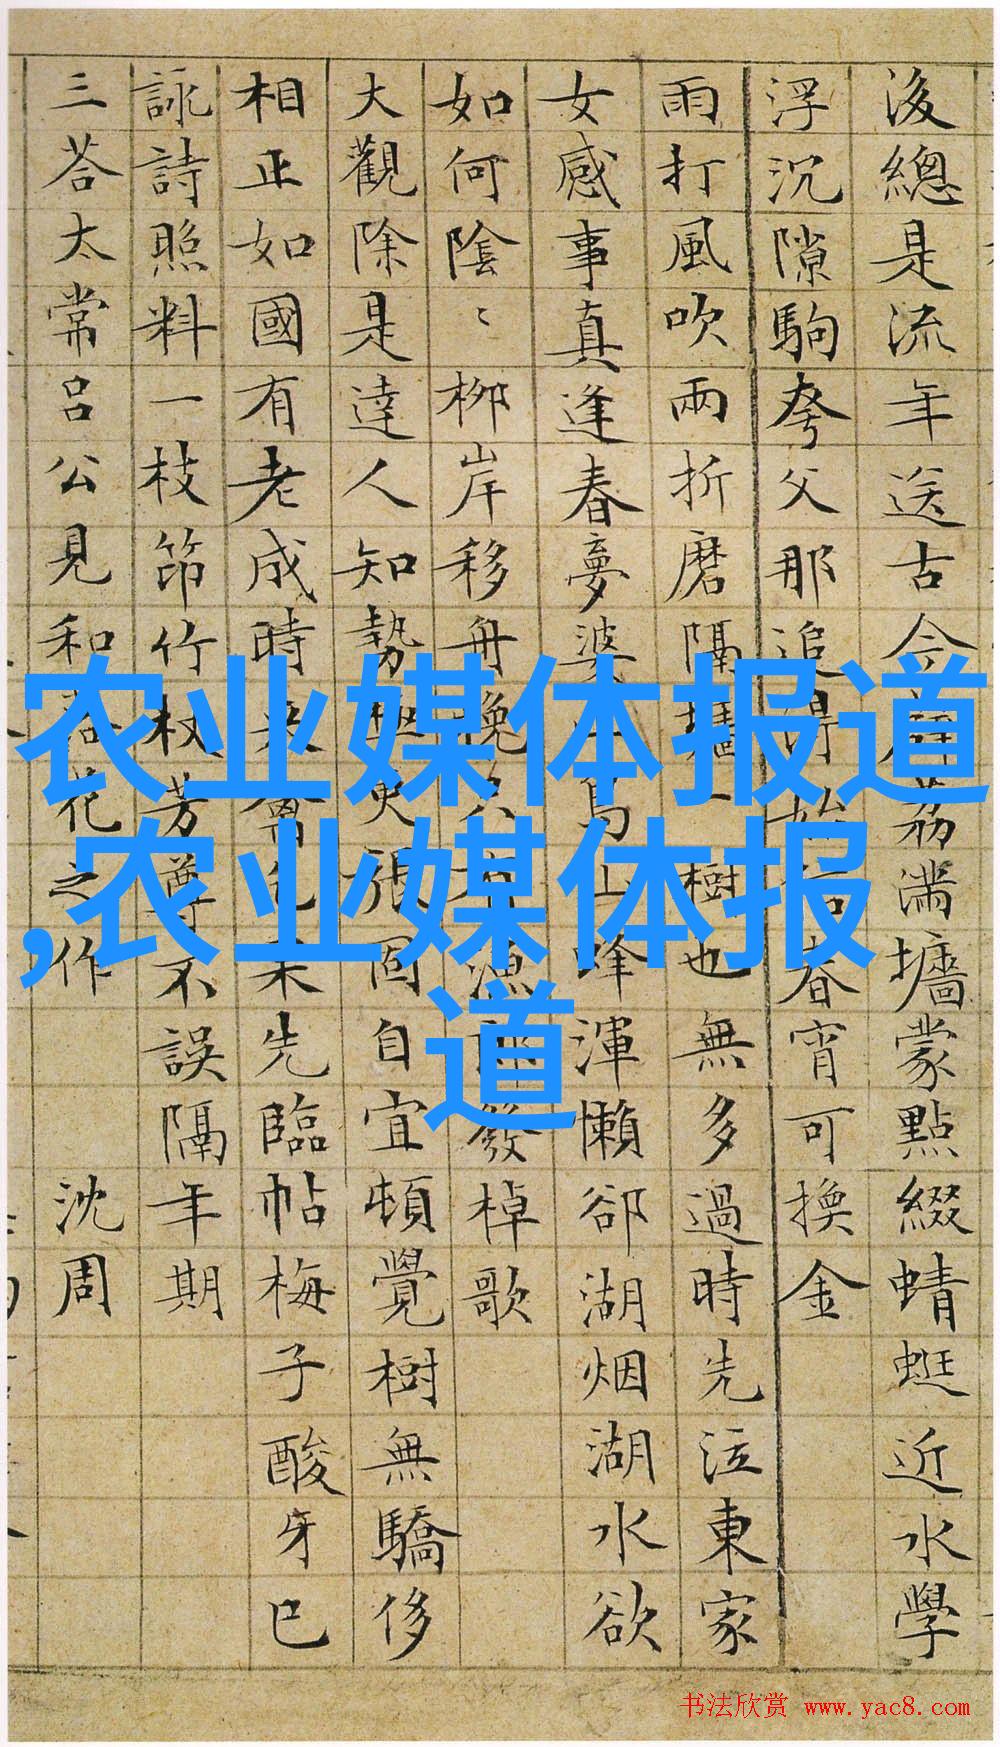 後總是流年送古今
荔滿墻蒙點綴蜻蜓近水學
浮沉隙駒夸父那追得
春宵可換金
雨打風吹兩折磨隔墻一樹也無多過時先泣東家
女感事真逢春夢婆
渾懶郤湖烟湖水欲
如何陰〻柳岸移舟晚
漁郎發棹歌
大觀除是達人知勢極更張固自宜頓覺樹無驕侈
相正如國有老成時
未先臨帖梅子酸牙已
詠詩照料一枝笻竹杖芳尊不誤隔年期
三荅太常呂公見和落花之作
沈周
农业媒体报道
,农业媒体报
道
书法欣赏 www.yac8.com